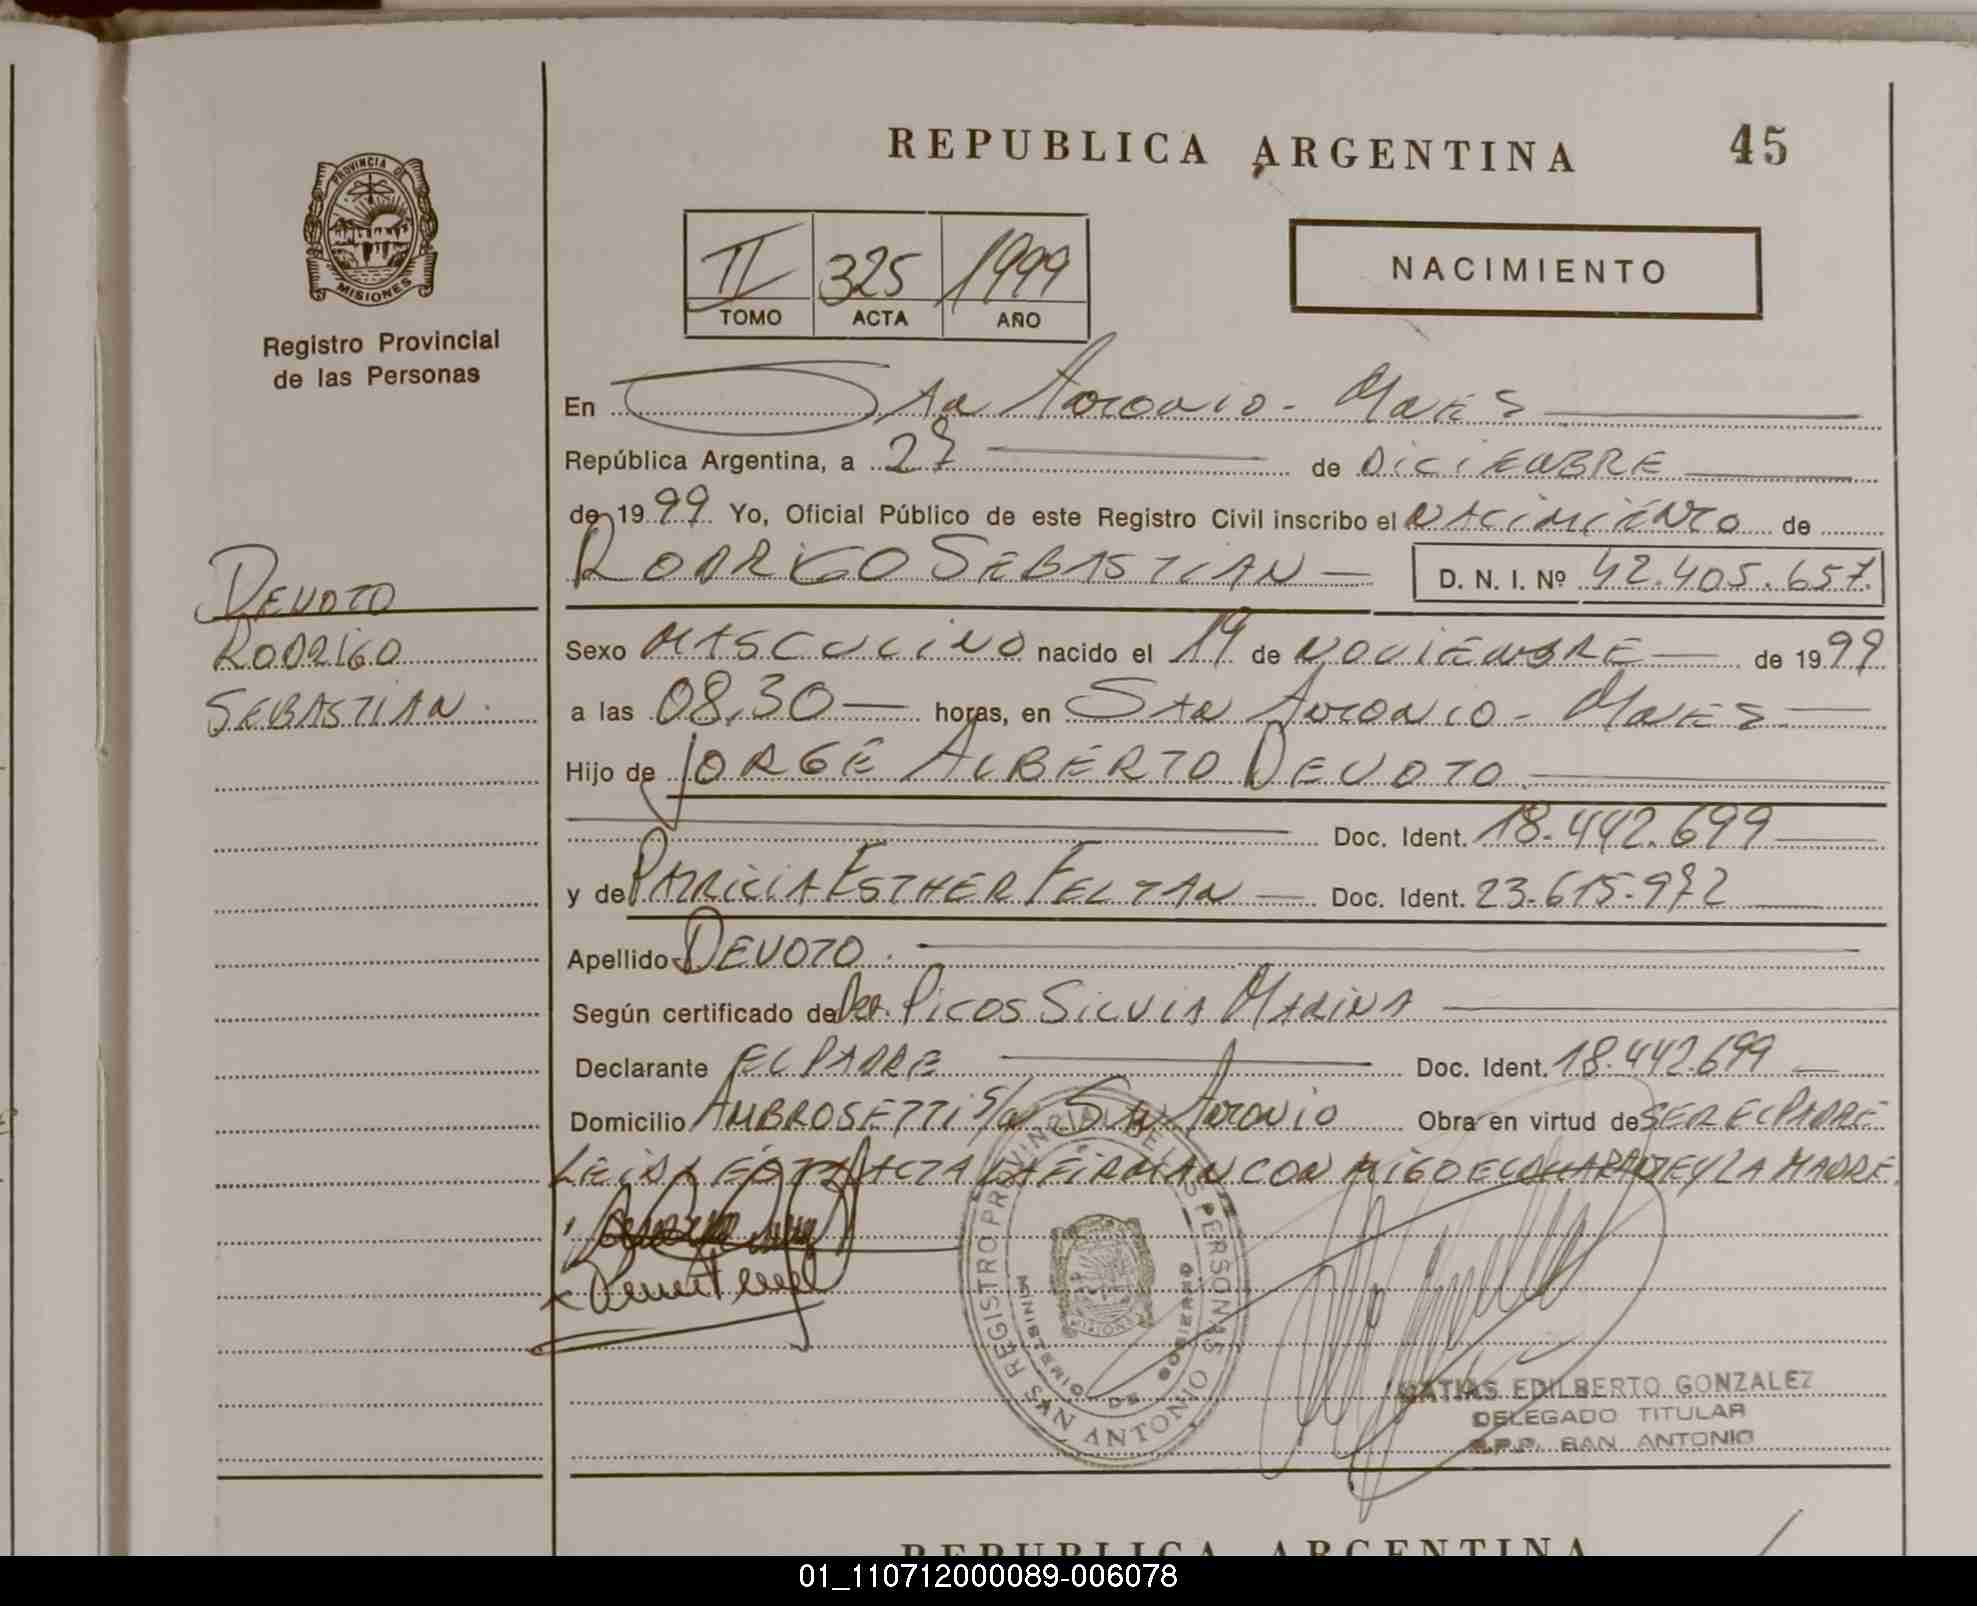 REPUBLICA ARGENTINA 45
PROVINCIA DE
MISIONES
Registro Provincial
de las Personas
II 325 1999
TOMO ACTA AÑO
NACIMIENTO
En San Antonio - Mnes
República Argentina, a 27 de DICIEMBRE
de 1999 Yo, Oficial Público de este Registro Civil inscribo el NACIMIENTO de
RODRIGO SEBASTIAN D. N. I. Nº 42.405.657.
DEVOTO
RODRIGO
SEBASTIAN
Sexo MASCULINO nacido el 19 de NOVIEMBRE de 1999
a las 08,30 horas, en San Antonio - Mnes
Hijo de JORGE ALBERTO DEVOTO
Doc. Ident. 18.442.699
y de PATRICIA ESTHER FELTAN Doc. Ident. 23.615.972
Apellido DEVOTO
Según certificado de PICOS SILVIA MARINA
Declarante EL PADRE Doc. Ident. 18.442.699
Domicilio AMBROSETTI s/n San Antonio Obra en virtud de SER EL PADRE
LEIDA ESTA ACTA LA FIRMAN CONMIGO EL DECLARANTE Y LA MADRE.
REGISTRO PROVINCIAL DE LAS PERSONAS
MINISTERIO DE GOBIERNO
SAN ANTONIO
MATIAS EDILBERTO GONZALEZ
DELEGADO TITULAR
R.P.P. SAN ANTONIO
REPUBLICA ARGENTINA
01_110712000089-006078